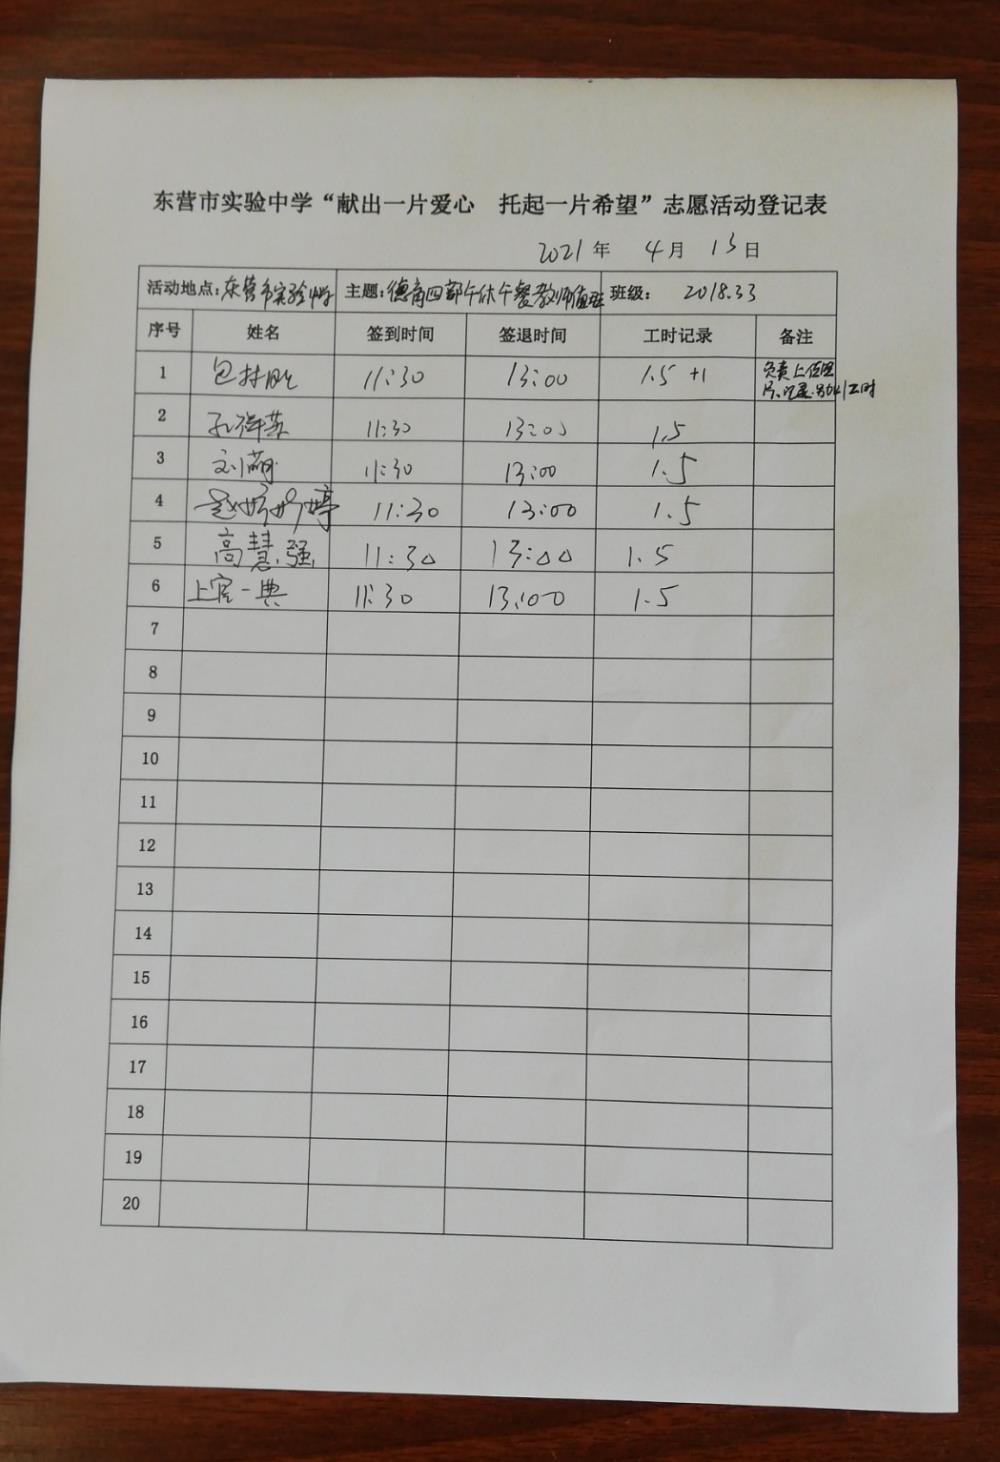 东营市实验中学“献出一片爱心 托起一片希望”志愿活动登记表
2021年 4月 13日
活动地点：东营市实验中学 主题：德育四部午休午餐教师值班 班级： 2018.33
序号 姓名 签到时间 签退时间 工时记录 备注
1 包 11:30 13:00 1.5 +1 负责上传照
片、记录.多加1工时
2 孔祥荪 11:30 13:00 1.5
3 刘萌 11:30 13:00 1.5
4 赵婷婷 11:30 13:00 1.5
5 高慧强 11:30 13:00 1.5
6 上官一典 11:30 13:00 1.5
7
8
9
10
11
12
13
14
15
16
17
18
19
20